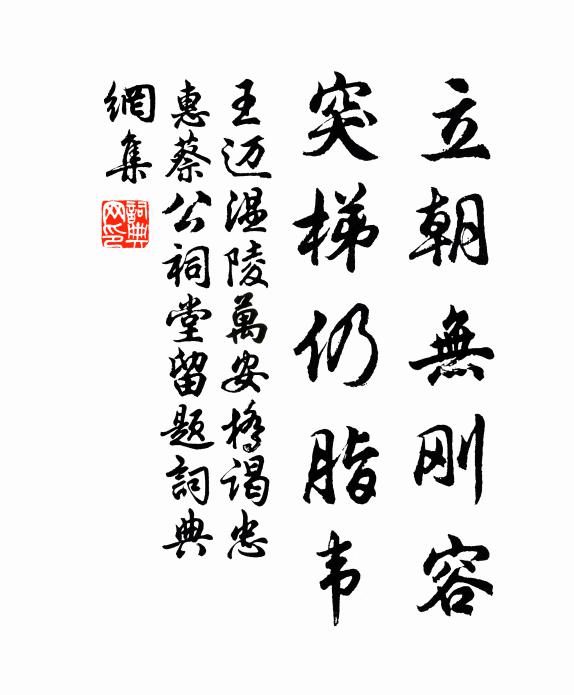 立朝無刚容
突梯仍脂韦
王迈温陵萬安橋谒忠
惠蔡公祠堂留题詞典
網集
詞典
网印